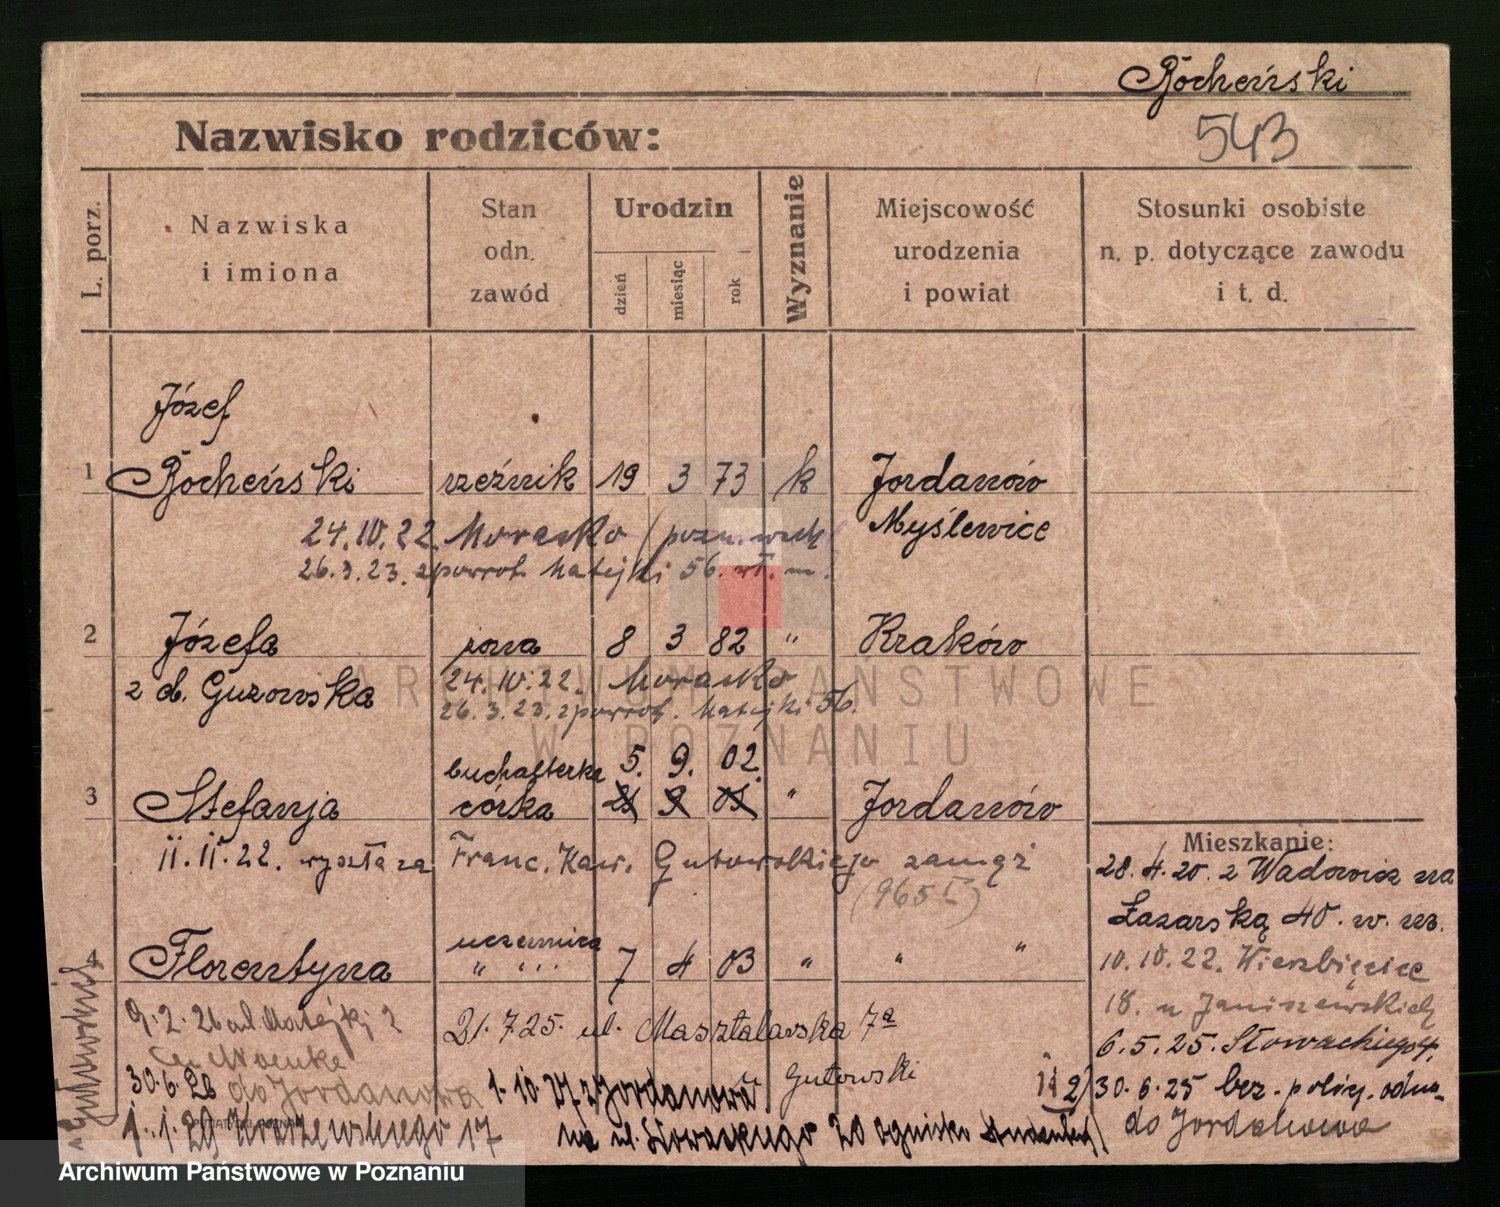 Rocheński
543
Nazwisko rodziców:
L. porz.
Nazwiska
i imiona
Stan
odn.
zawód
Urodzin
dzień
miesiąc
rok
Wyznanie
Miejscowość
urodzenia
i powiat
Stosunki osobiste
n. p. dotyczące zawodu
i t. d.
Józef
1 Rocheński rzeźnik 19 3 73 k Jordanów
Myślewice
24.IV.22. Morasko (pozn. wsch
26.3.23. zpowrot. Matejki 56. wł. m.
2 Józefa żona 8 3 82 " Kraków
z d. Guzowska 24.IV.22. Morasko
26.3.23. zpowrot. Matejki 56.
buchalterka 5. 9. 02.
3 Stefanja córka 9 " Jordanów
11.11.22. wyszła za Franc. Kaw. Gutowskiego zamąż
(965 I)
uczennica
4 Florentyna " " 7 4 03 " " "
9.2.26 ul. Matejki 2
21.7.25. ul. Masztalarska 7a
30.6.26 do Jordanowa 1.10.27 z Jordanowa Gutowski
1.1.29 Kraszewskiego 17 na ul. Słowackiego 20 ognisko
Mieszkanie:
28.4.20. z Wadowic na
Łazarską 40. w. m.
10.IV.22. Wierzbięcice
18. u Janiszewskich
6.5.25. Słowackiego
2) 30.6.25 bez. policy. odm.
do Jordanowa
ARCHIWUM PAŃSTWOWE
W POZNANIU
Archiwum Państwowe w Poznaniu